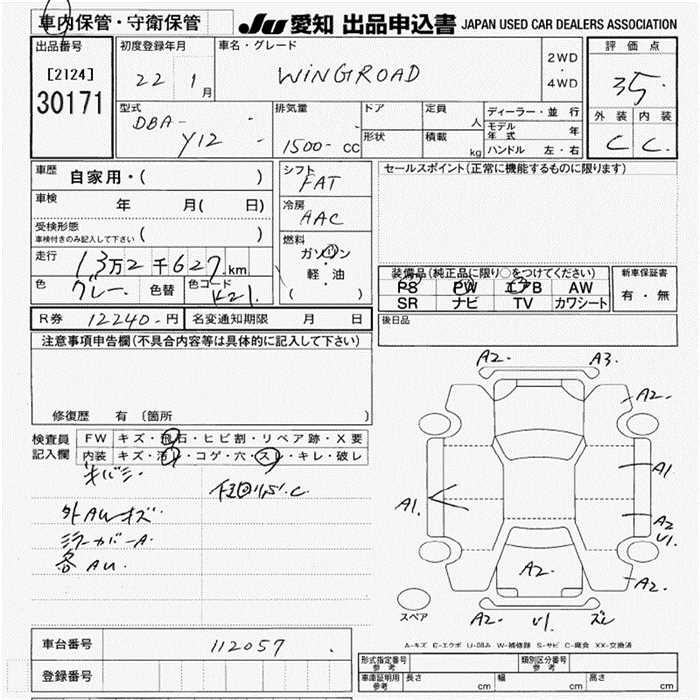 車内保管・守衛保管
JU 愛知 出品申込書 JAPAN USED CAR DEALERS ASSOCIATION
出品番号
[2124]
30171
初度登録年月
22 1月
車名・グレード
WINGROAD
2WD
・
4WD
評価点
3.5
外装 内装
C C
型式
DBA-
Y12
排気量
1500 cc
ドア
形状
定員
人
積載
kg
ディーラー・並行
モデル年式 年
ハンドル 左・右
車歴
自家用・( )
車検
年 月( 日)
受検形態
車検付きのみ記入して下さい ( )
走行
13万2千627km
色
グレー
色替
色コード
K21
シフト
FAT
冷房
AAC
燃料
ガソリン
軽・油
( )
セールスポイント(正常に機能するものに限ります)
装備品(純正品に限り○をつけてください)
PS PW エアB AW
SR ナビ TV カワシート
新車保証書
有・無
後日品
R券 12240-円
名変通知期限 月 日
注意事項申告欄(不具合内容等は具体的に記入して下さい)
修復歴 有 〔箇所 〕
検査員
記入欄
FW キズ・飛石・ヒビ割・リペア跡・X要
内装 キズ・汚レ・コゲ・穴・スレ・キレ・破レ
外AUキズ
ミラーカバーA
各AU
A2 A3
A2
A1
A1
A2
U1
A2
A2
A2 U1 ズレ
スペア
A-キズ E-エクボ U-凹み W-補修跡 S-サビ C-腐食 XX-交換済
車台番号
112057
登録番号
形式指定番号
参考
類別区分番号
参考
車庫証明用
参考
長さ cm
幅 cm
高さ cm